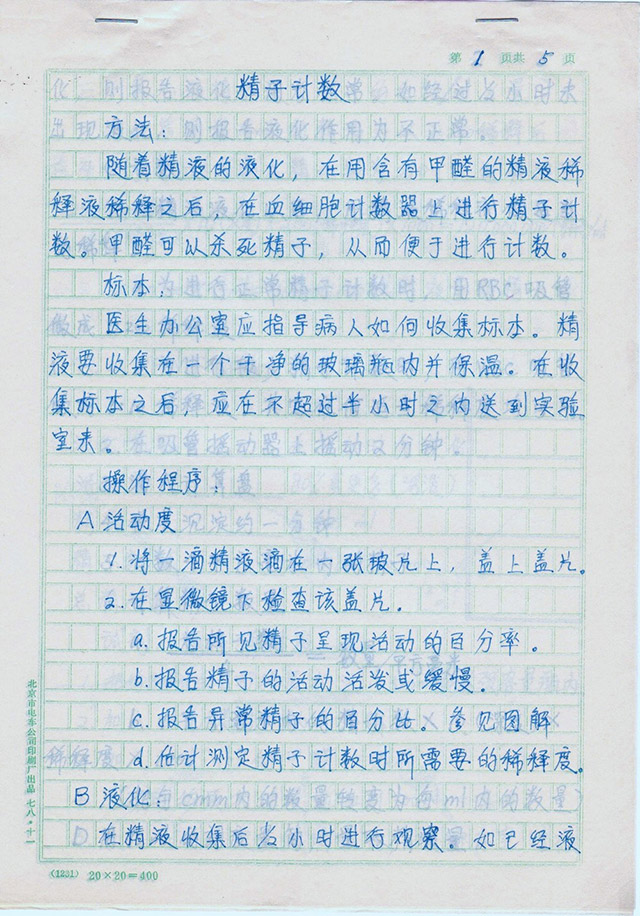 第 1 页共 5 页
精子计数
方法：
随着精液的液化，在用含有甲醛的精液稀
释液稀释之后，在血细胞计数器上进行精子计
数。甲醛可以杀死精子，从而便于进行计数。
标本：
医生办公室应指导病人如何收集标本。精
液要收集在一个干净的玻璃瓶内并保温。在收
集标本之后，应在不超过半小时之内送到实验
室来。
操作程序：
A 活动度
1.将一滴精液滴在一张玻片上，盖上盖片。
2.在显微镜下检查该盖片。
a.报告所见精子呈现活动的百分率。
b.报告精子的活动活泼或缓慢。
c.报告异常精子的百分比。参见图解
d.估计测定精子计数时所需要的稀释度。
B 液化：
在精液收集后½小时进行观察。如已经液
北京市电车公司印刷厂出品 七八·十一
(1231) 20×20=400